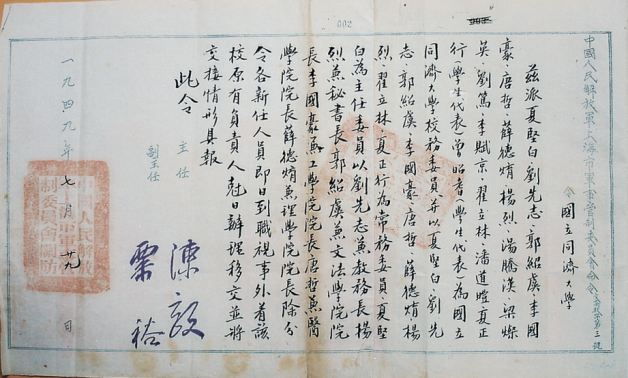 002
中國人民解放軍上海市軍事管制委員會命令
令 國立同濟大學
茲派夏堅白、劉先志、郭紹虞、李國
豪、唐哲、薛德焴、楊烈、湯騰漢、梁燦
英、劉篤、李賦京、翟立林、潘道暟、夏正
行(學生代表)、曾昭耆(學生代表)為國立
同濟大學校務委員,并以夏堅白、劉先
志、郭紹虞、李國豪、唐哲、薛德焴、楊
烈、翟立林、夏正行為常務委員,夏堅
白為主任委員,以劉先志兼教務長,楊
烈兼秘書長,郭紹虞兼文法學院院
長,李國豪兼工學院院長,唐哲兼醫
學院院長,薛德焴兼理學院院長,除分
令各新任人員即日到職視事外,着該
校原有負責人尅日辦理移交並將
交接情形具報
此令
主任 陳毅
副主任 粟裕
一九四九年七月廿九日